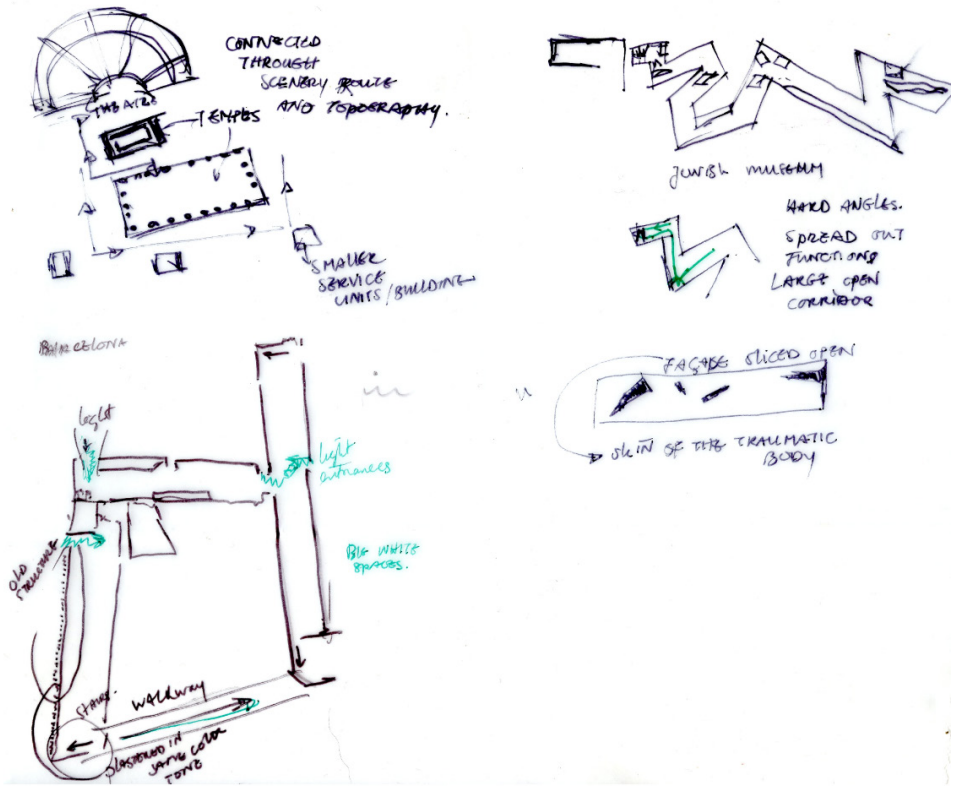 CONNECTED
THROUGH
SCENERY ROUTE
AND TOPOGRAPHY.
THEATRE
TEMPLES
SMALLER
SERVICE
UNITS/BUILDING
JEWISH MUSEUM
HARD ANGLES.
SPREAD OUT
FUNCTIONS
LARGE OPEN
CORRIDOR
FAÇADE SLICED OPEN
SKIN OF THE TRAUMATIC
BODY
BARCELONA
light
light
entrances
BIG WHITE
SPACES.
OLD
STRUCTURE
STAIRS.
WALKWAY
PLASTERED IN
SAME COLOR
TONE